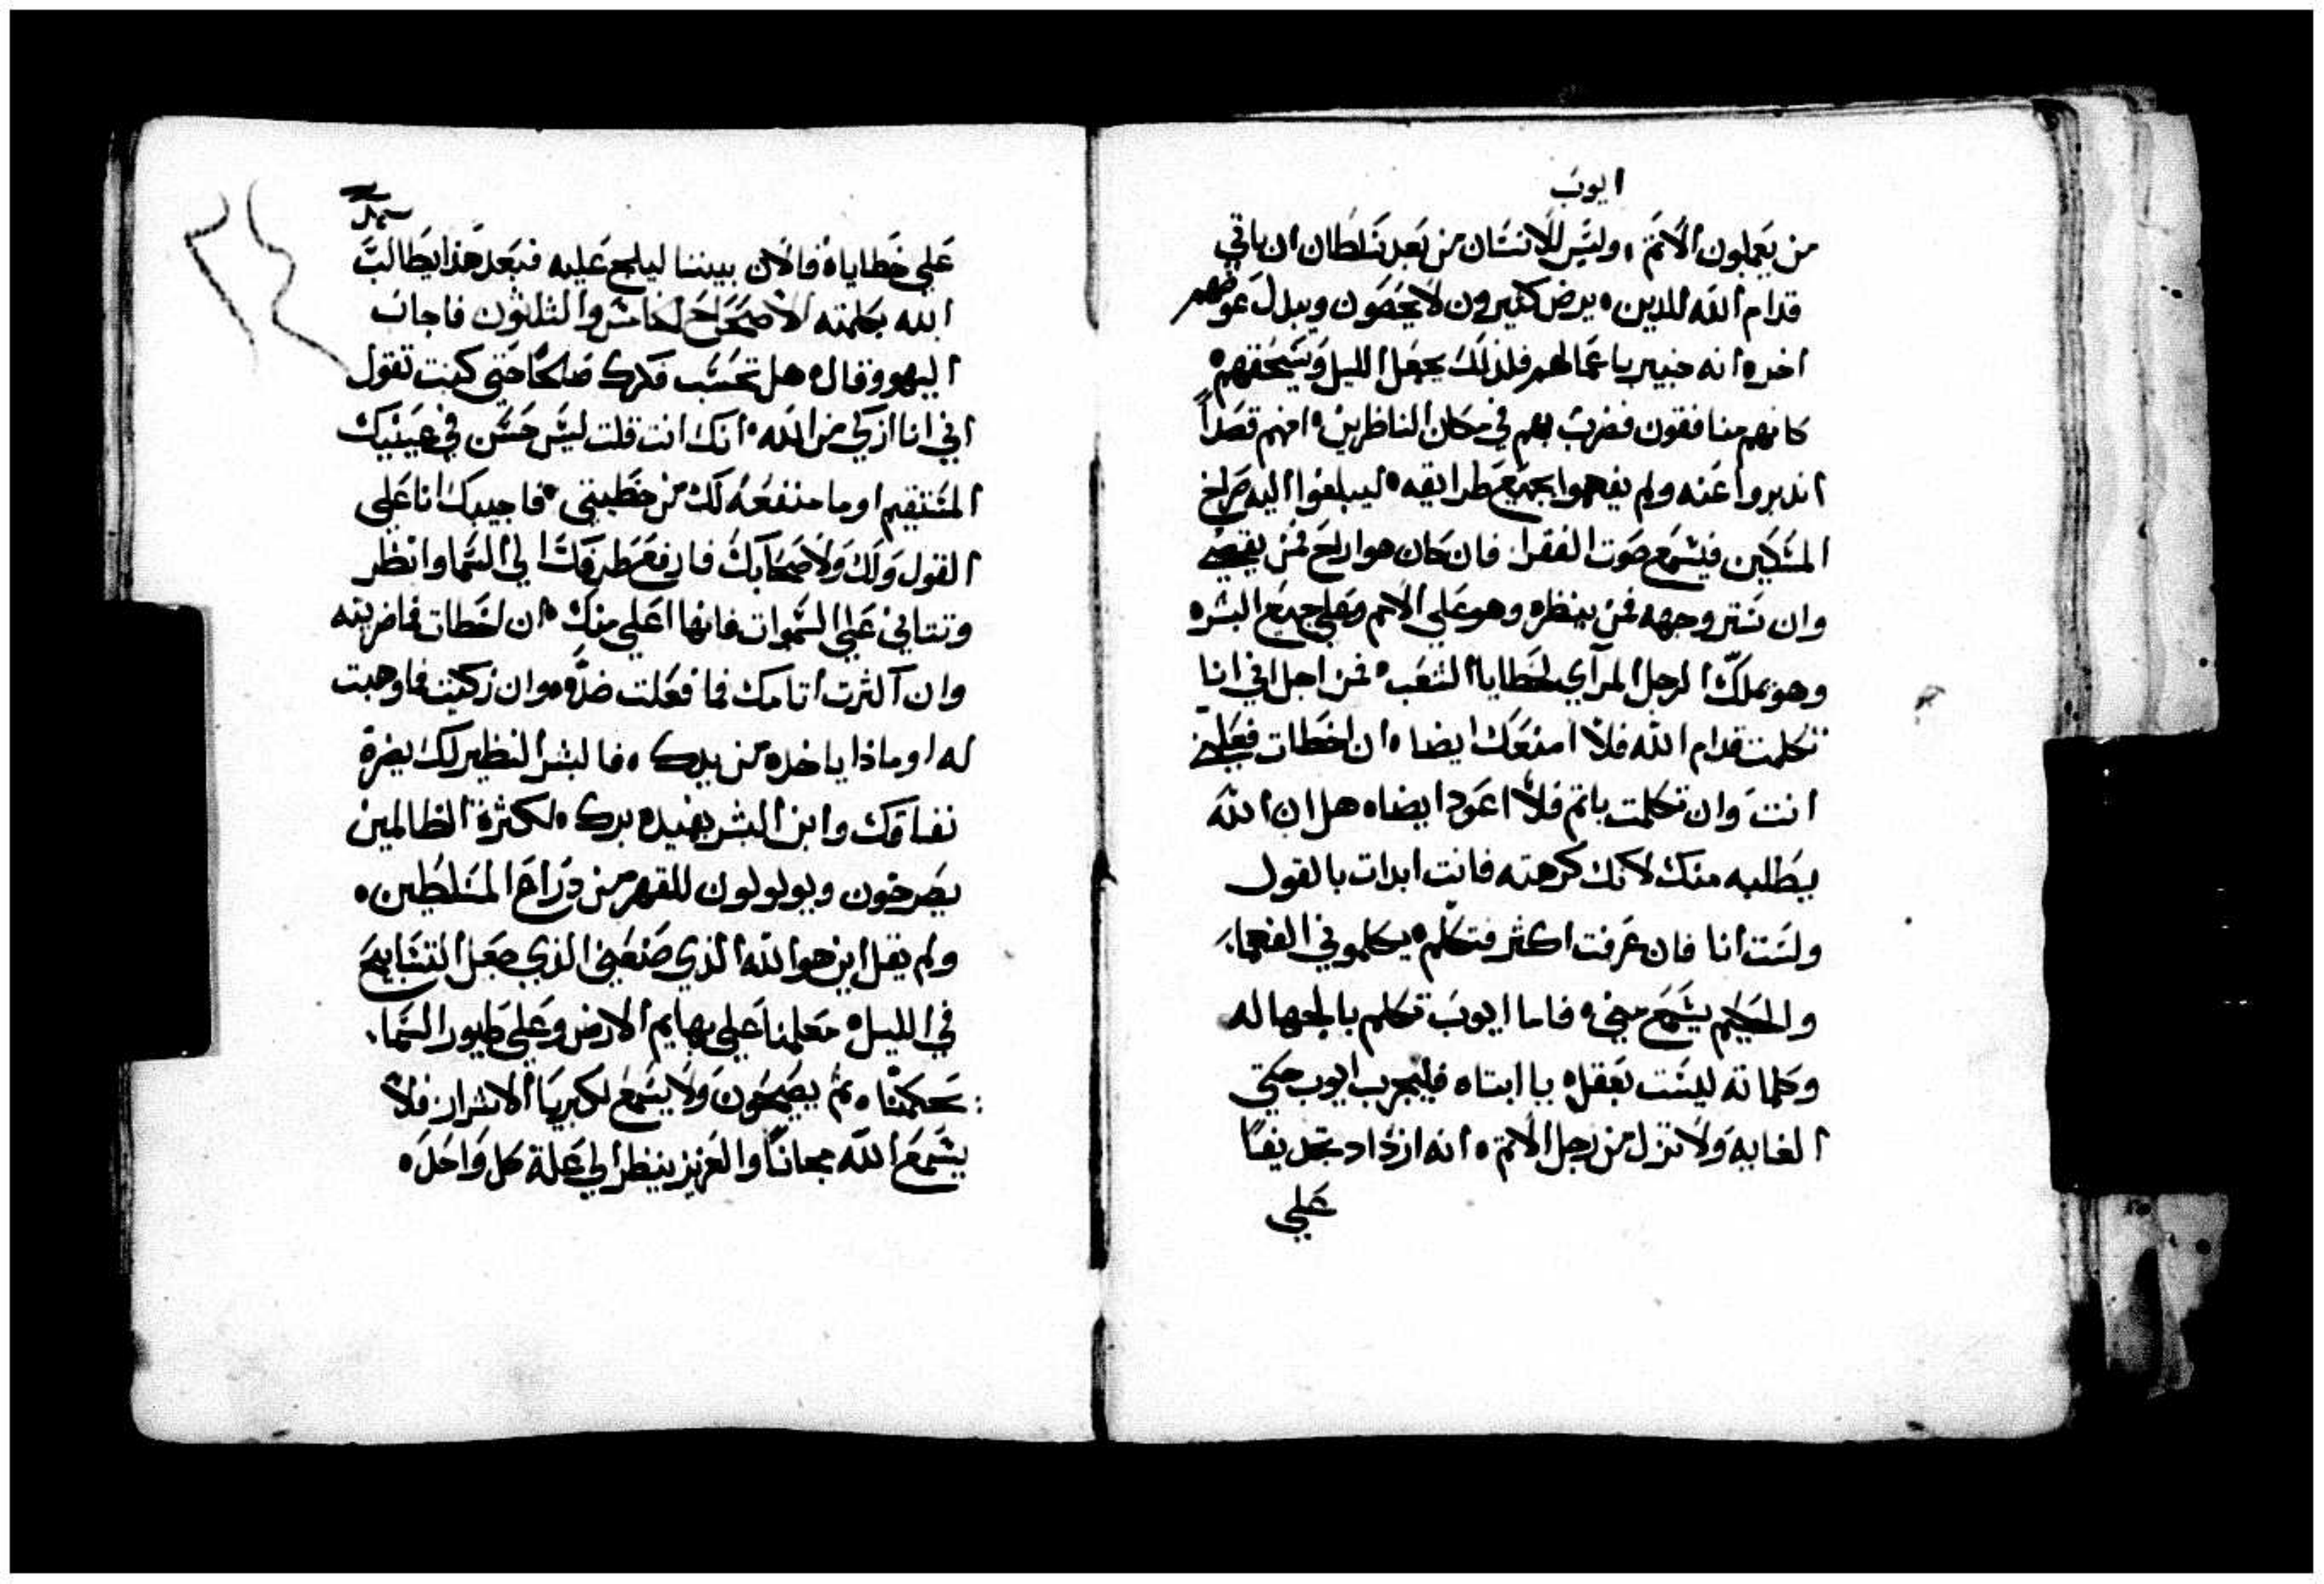 ايوب
من يعملون الاثم، وليس للانسان من بعد سلطان ان ياتي
قدام الله للدين ٥ يرض كثيرون لا يحصون ويبدل عوضهم
اخره انه خبير باعمالهم فلذلك يجعل الليل ويسحقهم ٥
كانهم منافقون فضرب بهم في مكان الناظرين ٥ امنهم قصداً
اندبروا عنه ولم يفهموا بجميع طرايقه ٥ ليبلغوا اليه صراخ
المسكين فيسمع صوت الفقرا. فان كان هو اراح فمن يقضي
وان ستر وجهه فمن ينظره وهو على الامم وعلى جميع البشره
وهو يملك الرجل المرآي لخطايا الشعب ٥ فمن اجل اني انا
تكلمت قدام الله فلا امنعك ايضا ٥ ان اخطات فعلمني
انت وان تكلمت باثم فلا اعود ايضا ٥ هل ان الله
يطلبه منك لانك كرهته فانت ابدات بالقول
ولست انا فان عرفت اكثر فتكلم ٥ يكلموني الفهما.
والحكيم يسمع مني ٥ فاما ايوب تكلم بالجهاله
وكلماته ليست بعقل ٥ يا ابتاه فليجرب ايوب حتى
الغايه ولا تزل من رجل الاثم ٥ انه ازداد تجديفا
على
على خطاياه فالان بيننا ليلج عليه فبعد هذا يطالب
الله بكلمته الاصحاح الخامس والثلثون فاجاب
اليهو وقال ٥ هل تحسب فكرك صالحا حتى كنت تقول
اني انا ازكى من الله ٥ انك انت قلت ليس حسن في عينيك
المستقيم او ما منفعه لك من خطيتي ٥ فاجيبك انا على
القول ولك ولاصحابك فارفع طرفك الى السما وانظر
وتتاني على السموات فانها اعلى منك ٥ ان اخطات فما ضريته
وان آكثرت اثامك فما فعلت ضده ٥ وان زكيت فما وهبت
له او ماذا ياخذه من يدك ٥ فالبشر النظير لك يضرة
نفاقك وابن البشر يفيده برك ٥ لكثرة الظالمين
يصرخون ويولولون للقهر من دراع المسلطين ٥
ولم يقل اين هو الله الذي صنعني الذي جعل التسابيح
في الليل ٥ معلمنا على بهايم الارض وعلى طيور السما.
يحكمنا ٥ ثم يصيحون ولا يسمع لكبريا الاشرار فلا
يسمع الله مجاناً والعزيز ينظر الى علة كل واحد ٥